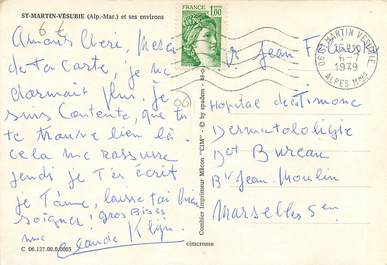 ST-MARTIN-VÉSUBIE (Alp.-Mar.) et ses environs
6 €
Amour Chéri, Merci
de ta Carte, je ne
dormait plus. Je
suis Contente, que tu
te trouve bien là
cela me rassure
jeudi je T'ai écrit
je T'aime, laisse toi bien
soigner! gros Bises
Claude
C 06.127.00.0.0005
cimcrome
Combier Imprimeur Mâcon "CIM"
by spadem
FRANCE
1,00
06 ST MARTIN VÉSUBIE
1979
ALPES MMES
Mr Jean
Hopital de la Timone
Dermatologie
Bureau
Bd Jean-Moulin
Marseille 5em